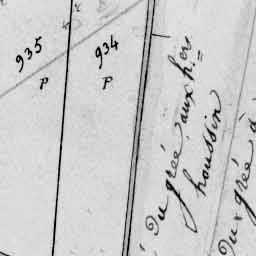 935
P
934
P
Du gréé aux her
houssin
Du gréé à